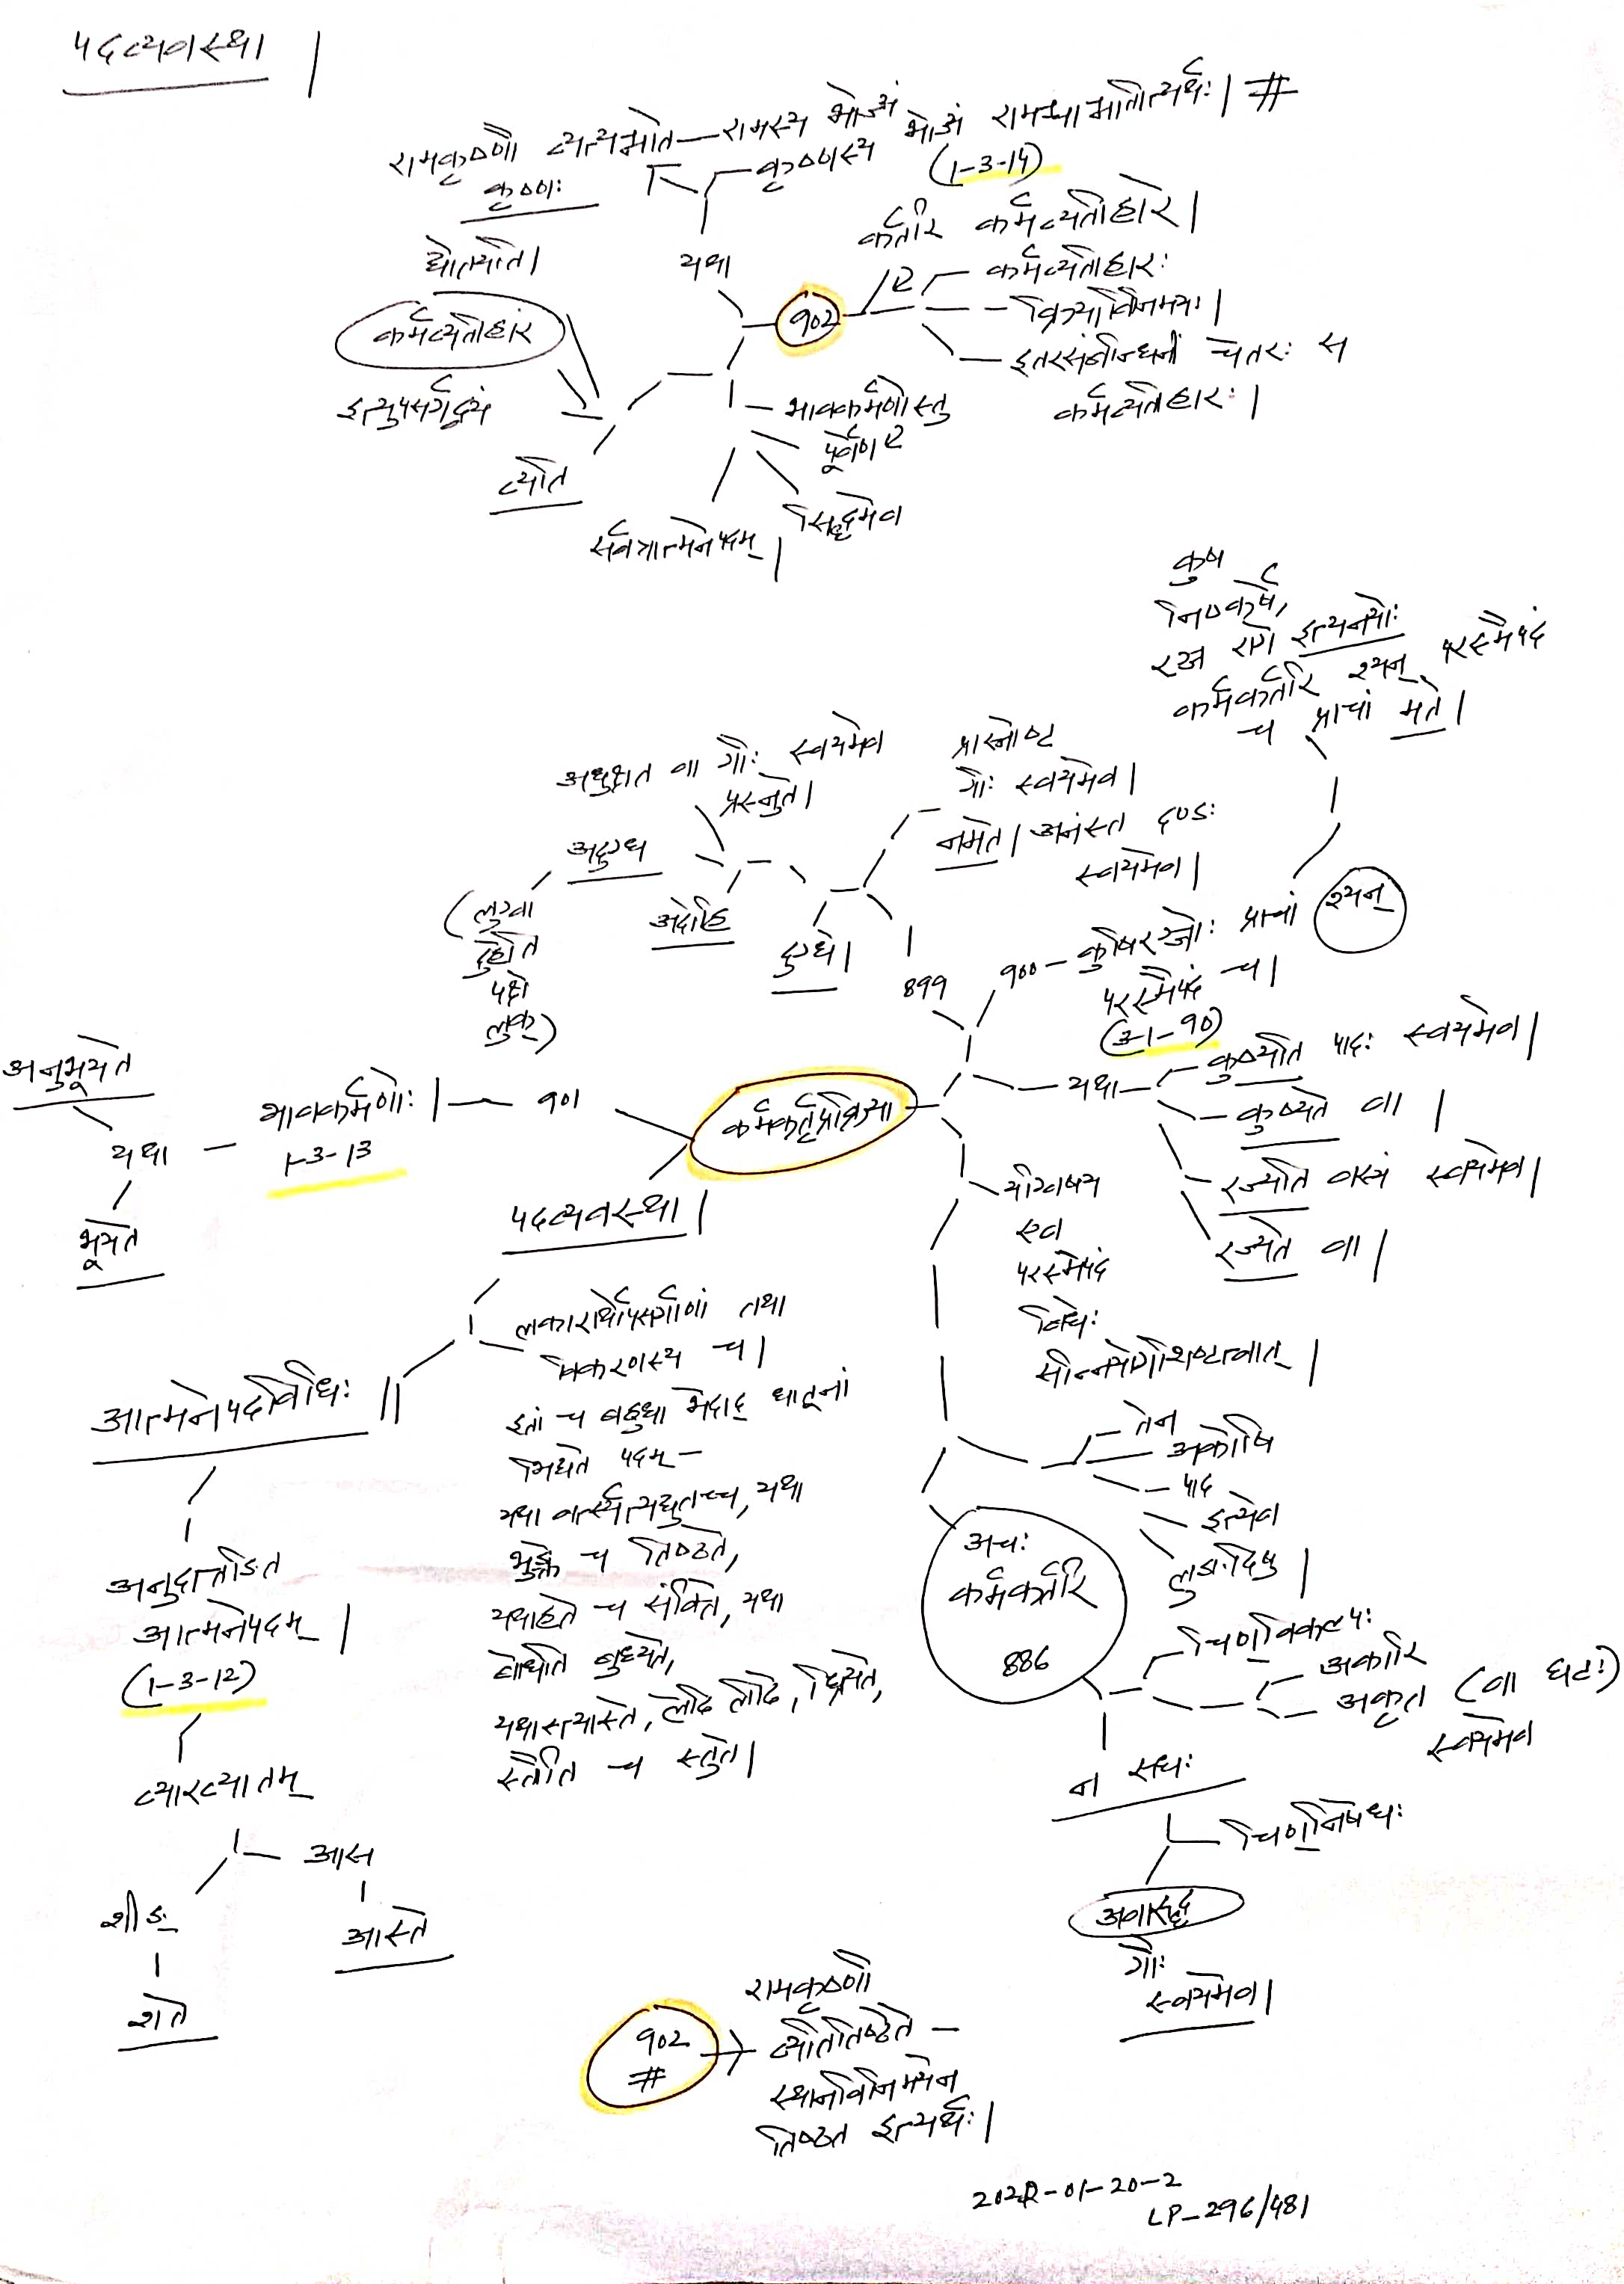 पदव्यवस्था |
रामकृष्णौ व्यत्यभाते — रामस्य भोज्यं
कृष्णः
कृष्णस्य
रामश्चा
#
(1-3-14)
द्योतयति |
यथा
कर्तरि कर्मव्यतिहारे |
कर्मव्यतिहारः
कर्मव्यतिहारं
९०२
क्रियाविनिमयः |
इतरसंबन्धिनीं चेतरः स
कर्मव्यतिहारः |
इत्युपसर्गद्वयं
भावकर्मणोस्तु
पूर्वेण
व्यति
सिद्धमेव
सर्वत्रात्मनेपदम् |
कुष
निष्कर्षे,
रञ्ज रागे इत्यनयोः
कर्मकर्तरि श्यन् परस्मैपदं
च प्राचां मते |
अधुक्षत वा गौः स्वयमेव
प्रस्नुते |
प्रास्नोष्ट
गौः स्वयमेव |
नमते | अनंस्त दण्डः
स्वयमेव |
अदुग्ध
(लुग्वा
दुहेति
पक्षे
लुक्)
अदोहि
दुग्धे |
899
९०० — कुषिरञ्जोः प्राचां श्यन्
परस्मैपदं च |
(3-1-90)
यथा — कुष्यति पादः स्वयमेव |
कुष्यते वा |
रज्यति वस्त्रं स्वयमेव |
रज्यते वा |
अनुभूयते
यथा — भावकर्मणोः | — ९०१
1-3-13
भूयते
कर्मकर्तृप्रक्रिया
यग्विषय
एव
परस्मैपदं
विधेः
पदव्यवस्था |
लकारार्थोपसर्गाणां तथा
विकरणस्य च |
इतां च बहुधा भेदाद् धातूनां
भिद्यते पदम् —
यथा वर्त्स्यत्यद्युतच्च, यथा
भुङ्क्ते च तिष्ठते,
यथाहते च संवित्ते, यथा
बोधति बुध्यते,
म्रियते,
स्तौति च स्तुते |
आत्मनेपदविधिः ||
अनुदात्तङित
आत्मनेपदम् |
(1-3-12)
व्याख्यातम्
आस
आस्ते
शीङ्
शेते
तेन
अकोषि
पाद
इत्येव
लुङादिषु |
अचः
कर्मकर्तरि
886
चिण्विकल्पः
अकारि
अकृत (वा घटः)
स्वयमेव
न रुधः
चिण्निषेधः
अवारुद्ध
गौः
स्वयमेव |
९०२
#
रामकृष्णौ
व्यतितिष्ठेते —
स्थानविनिमयेन
तिष्ठत इत्यर्थः |
2022-01-20-2
LP-296/481